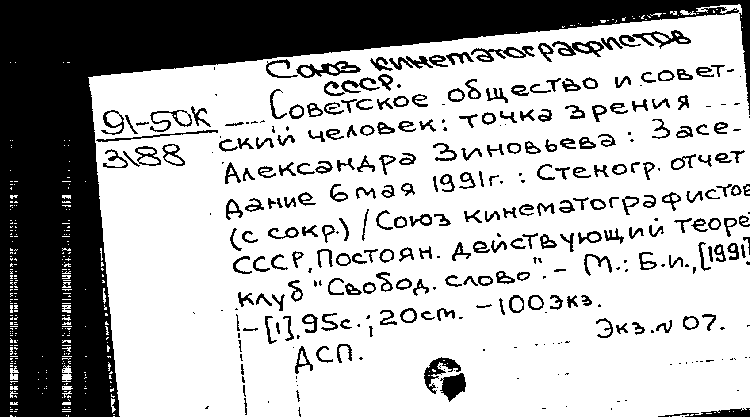 Союз кинематографистов
СССР.
91-50К
3188
Советское общество и совет-
ский человек: точка зрения
Александра Зиновьева: Засе-
дание 6 мая 1991г. : Стеногр. отчет
(с сокр.) / Союз кинематографистов
СССР, Постоян. действующий теоре
клуб "Свобод. слово". - М.: Б.и., [1991]
- [1], 95с.; 20см. - 100 экз.
ДСП.
Экз. № 07.